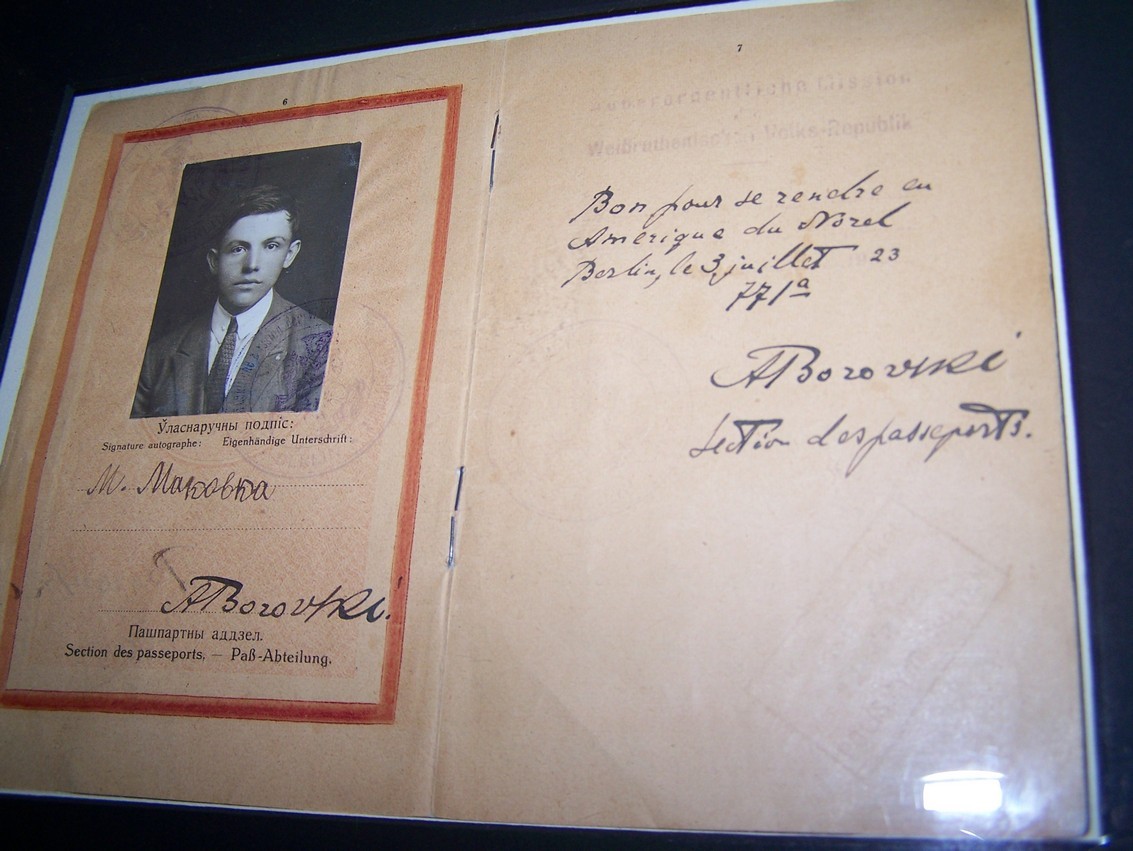 6
Ўласнаручны подпіс:
Signature autographe: Eigenhändige Unterschrift:
М. Маковка
ABorovski.
Пашпартны аддзел.
Section des passeports, — Paß-Abteilung.
7
Mission
Volks-Republik
Bon pour se rendre en
Amerique du Nord
Berlin, le 3 juillet 23
771ª
ABorovski
Section des passeports.